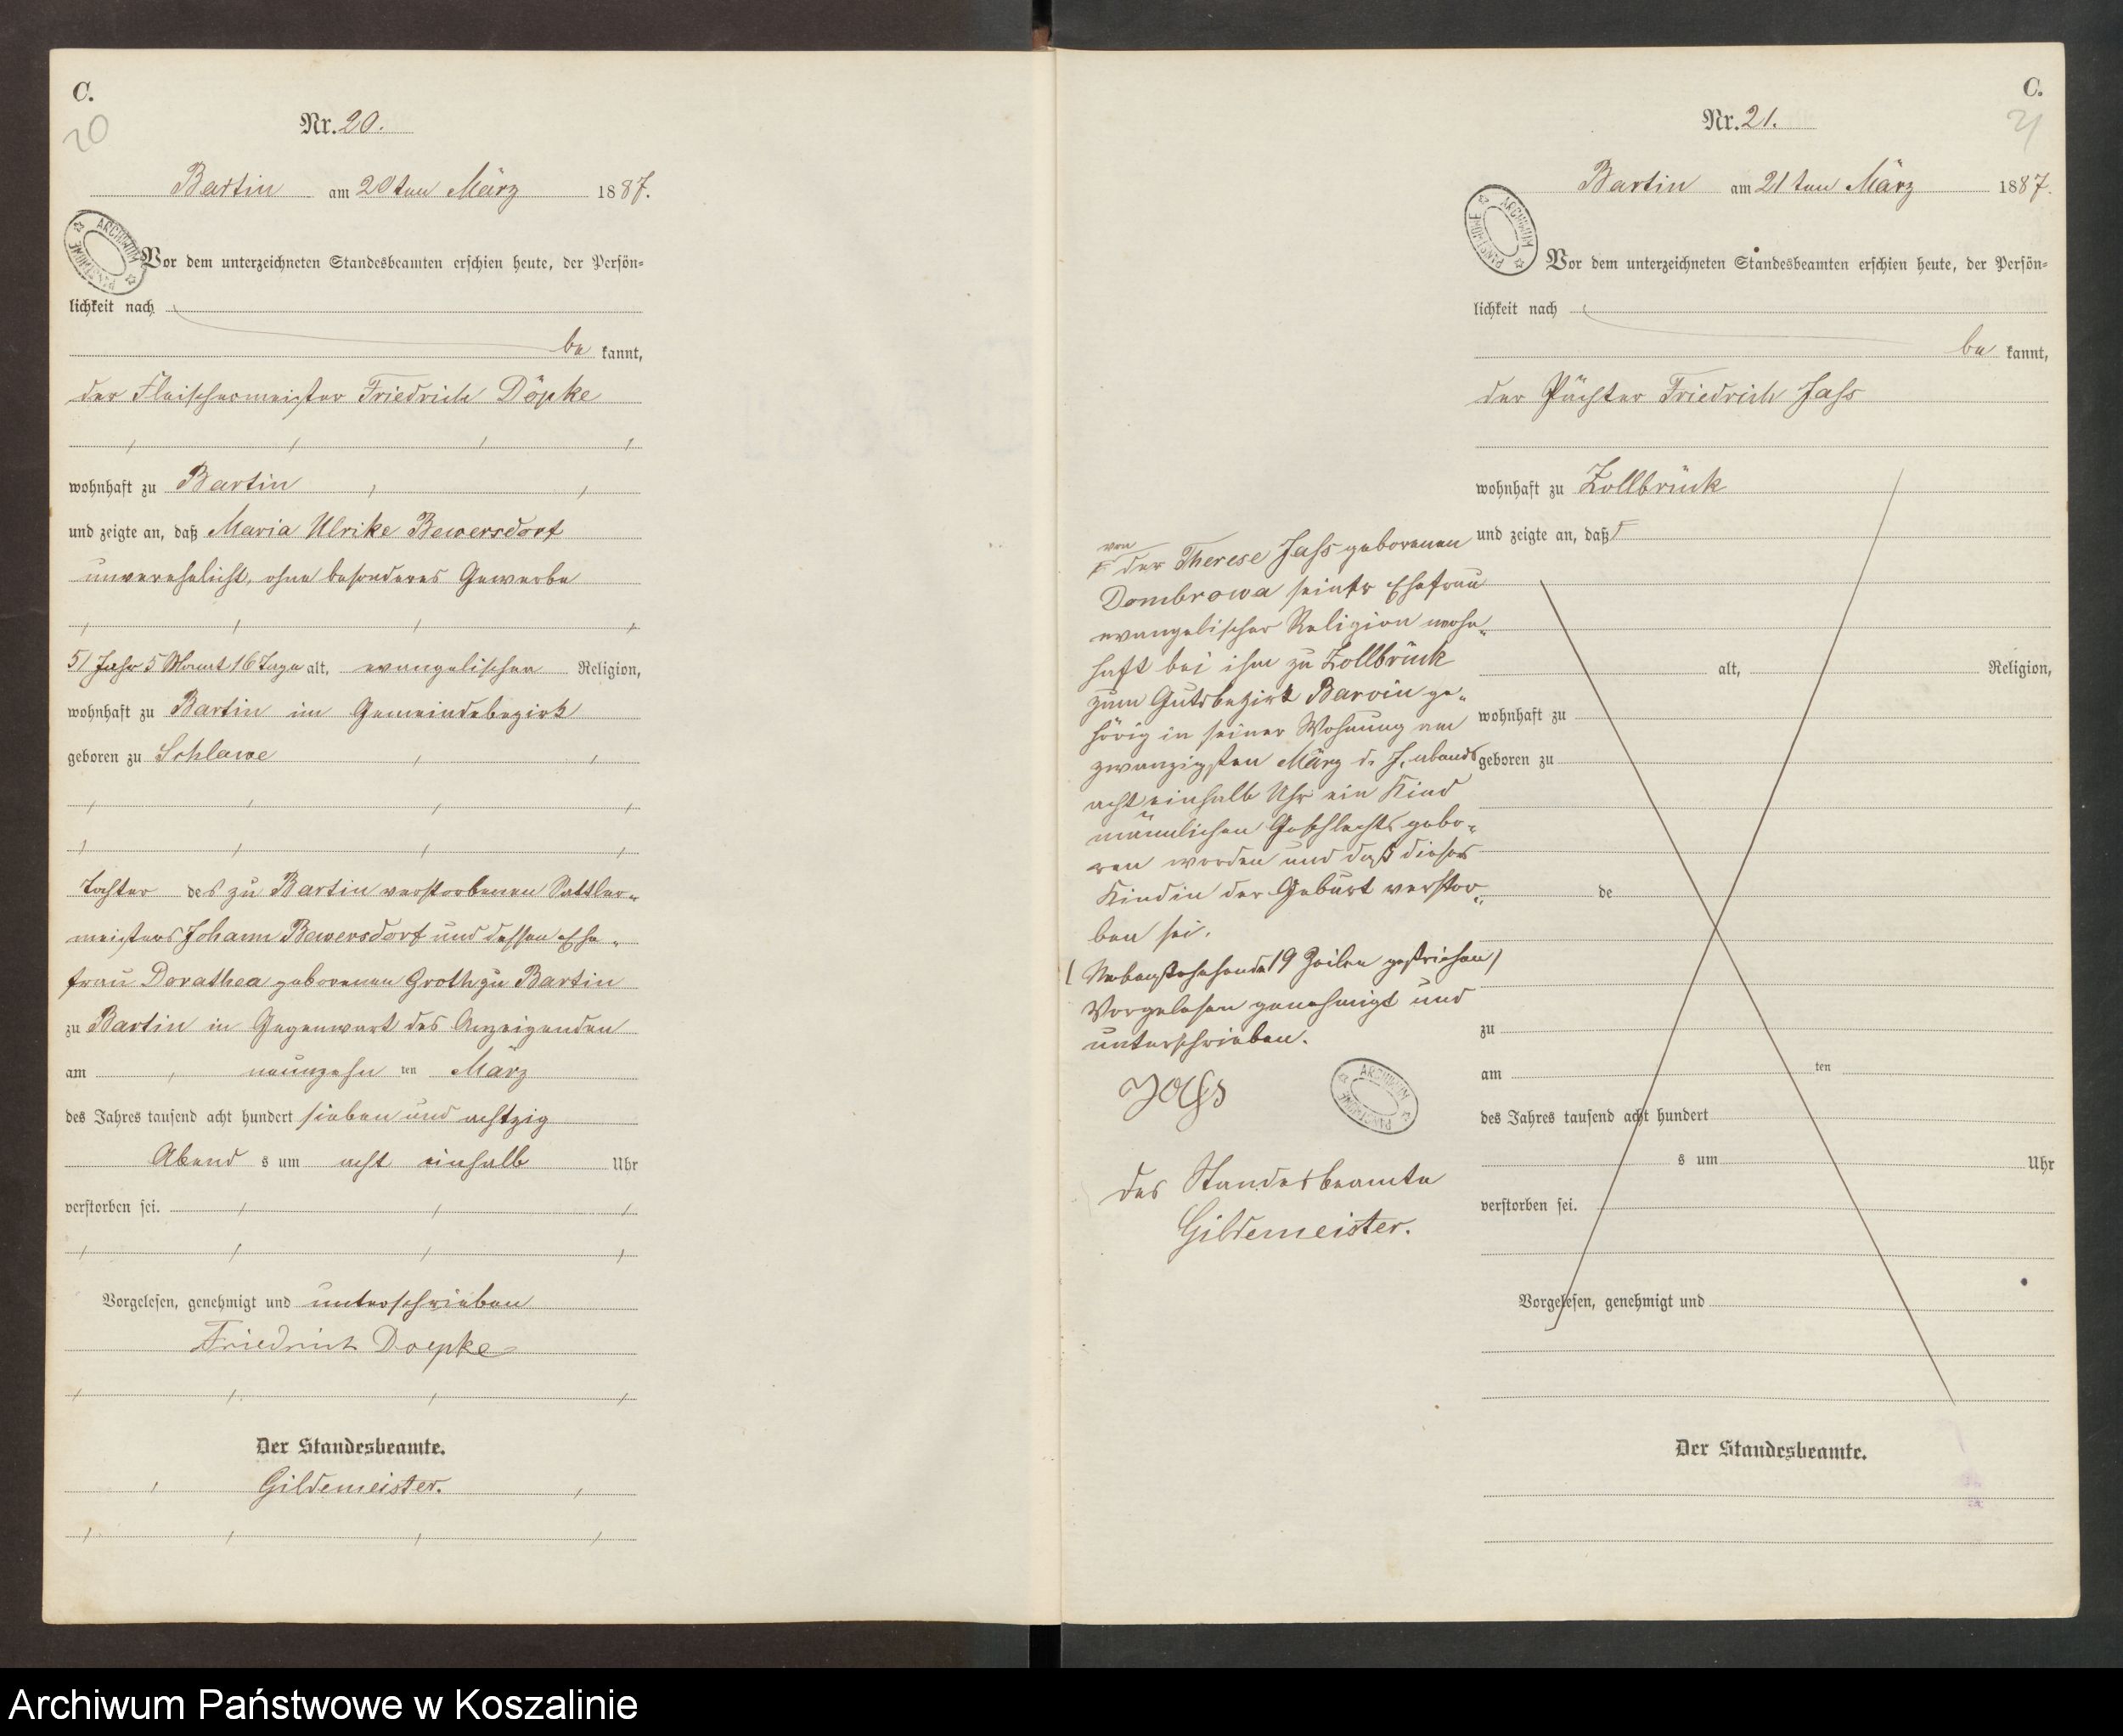 C.
20
Nr. 20.
Bartin am 20ten März 1887.
ARCHIWUM PAŃSTWOWE
Vor dem unterzeichneten Standesbeamten erschien heute, der Persön-
lichkeit nach
be kannt,
der Fleischermeister Friedrich Döpke
wohnhaft zu Bartin
und zeigte an, daß Maria Ulrike Bewersdorf
unverehelicht, ohne besonderes Gewerbe
51 Jahr 5 Monat 16 Tage alt, evangelischen Religion,
wohnhaft zu Bartin im Gemeindebezirk
geboren zu Schlawe
Tochter des zu Bartin verstorbenen Sattler-
meisters Johann Bewersdorf und dessen Ehe-
frau Dorathea geborenen Groth zu Bartin
zu Bartin in Gegenwart des Anzeigenden
am neunzehn ten März
des Jahres tausend acht hundert sieben und achtzig
Abend s um acht einhalb Uhr
verstorben sei.
Vorgelesen, genehmigt und unterschrieben
Friedrich Doepke
Der Standesbeamte.
Gildemeister.
C.
21
Nr. 21.
Bartin am 21ten März 1887.
ARCHIWUM PAŃSTWOWE
Vor dem unterzeichneten Standesbeamten erschien heute, der Persön-
lichkeit nach
be kannt,
der Pächter Friedrich Jass
wohnhaft zu Zollbrück
und zeigte an, daß
von
der Therese Jass geborenen
Dombrowa seiner Ehefrau
evangelischer Religion wohn-
haft bei ihm zu Zollbrück
zum Gutsbezirk Barvin ge-
hörig in seiner Wohnung am
zwanzigsten März d. J. abends
acht einhalb Uhr ein Kind
männlichen Geschlechts gebo-
ren worden und daß dieses
Kind in der Geburt verstor-
ben sei.
(Nebenstehende 19 Zeilen gestrichen)
Vorgelesen genehmigt und
unterschrieben.
Jass
ARCHIWUM PAŃSTWOWE
Der Standesbeamte
Gildemeister.
alt, Religion,
wohnhaft zu
geboren zu
de
zu
am ten
des Jahres tausend acht hundert
s um Uhr
verstorben sei.
Vorgelesen, genehmigt und
Der Standesbeamte.
Archiwum Państwowe w Koszalinie